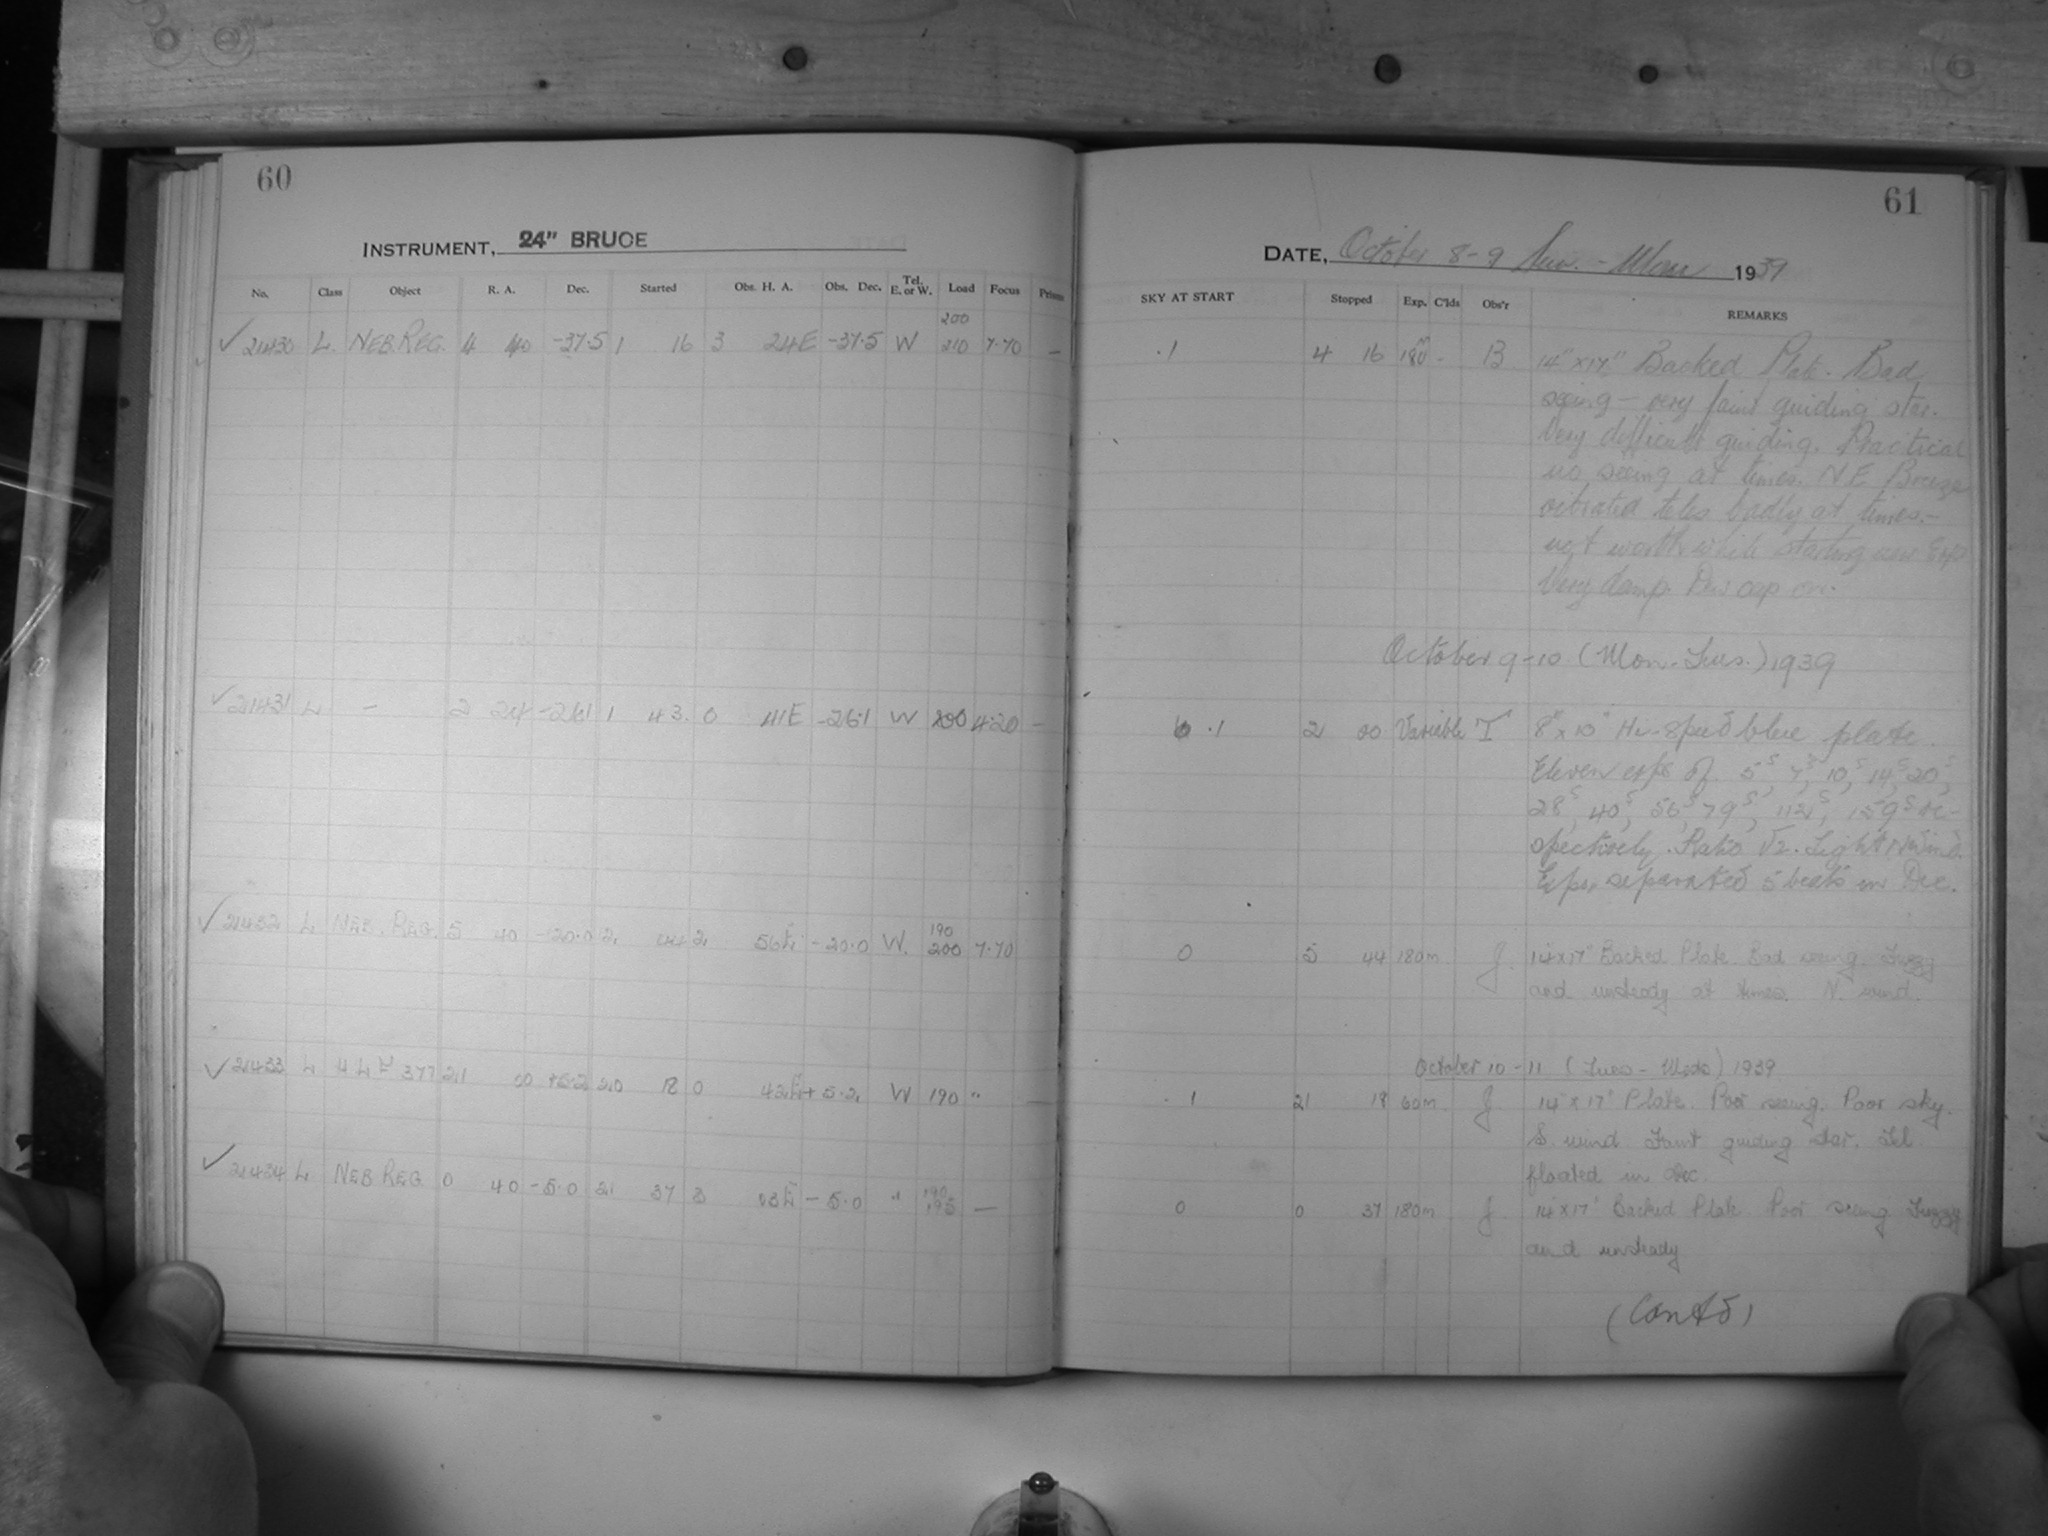 60
INSTRUMENT, 24" BRUCE
No. Class Object R. A. Dec. Started Obs. H. A. Obs. Dec. Tel. E. or W. Load Focus Prism
200
21430 L. NEB. REG. 4 40 -37.5 1 16 3 24E -37.5 W 210 7.70 —
21431 L - 2 24 -26.1 1 43. 0 41E -26.1 W 200 4.20 —
190
21432 L NEB. REG. 5 40 -20.0 2 44 2 56E -20.0 W. 200 7.70
21433 L 377 21 00 +5.2 20 18 0 42E +5.2 W 190 "
190
21434 L NEB REG. 0 40 -5.0 21 37 3 03E -5.0 " 195 —
61
DATE, October 8-9 Sun. - Mon 1939
SKY AT START Stopped Exp. C'lds Obs'r REMARKS
.1 4 16 180m - B 14" x 17" Backed Plate. Bad
seeing - very faint guiding star.
Very difficult guiding. Practical
no seeing at times. N.E Breeze
vibrated teles badly at times. -
not worth while starting new Exp
Very damp. Dew cap on.
October 9-10 (Mon-Tues.) 1939
.1 2 00 Variable T 8" x 10" Hi-Speed blue plate.
Eleven exps of 5s, 7s, 10s, 14s, 20s,
28s, 40s, 56s, 79s, 112s, 159s re-
spectively. Ratio √2. Light N Wind.
Exps. separated 5 beats in Dec.
0 5 44 180m J. 14x17" Backed Plate Bad seeing. Fuzzy
and unsteady at times. N. wind.
October 10-11 (Tues - Weds) 1939
.1 21 18 60m J. 14" x 17" Plate. Poor seeing. Poor sky.
S. wind Faint guiding star. Tel
floated in Dec.
0 0 37 180m J 14 x 17" Backed Plate Poor seeing Fuzzy
and unsteady
(Contd)